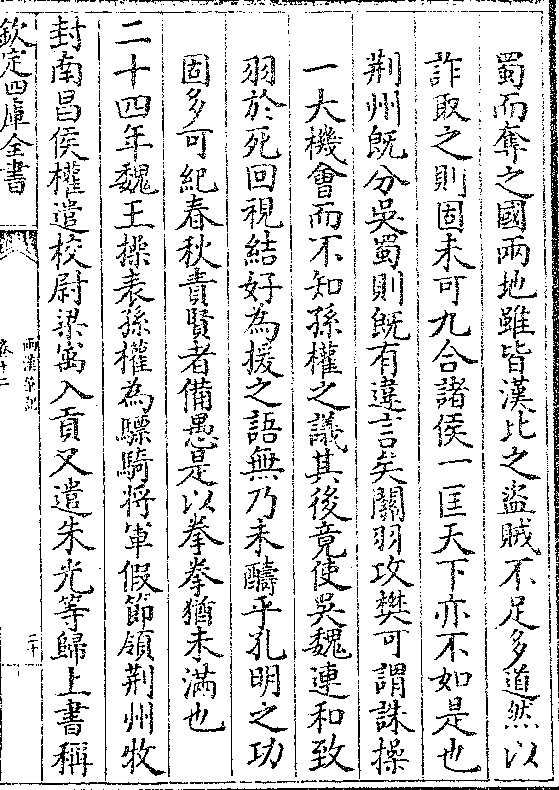 蜀而奪之國兩地雖皆漢比之盜賊不足多道然以
詐取之則固未可九合諸侯一匡天下亦不如是也
荆州旣分吳蜀則旣有違言矣關羽攻樊可謂誅操
一大機會而不知孫權之議其後竟使吳魏連和致
羽於死回視結好為援之語無乃未醻乎孔明之功
固多可紀春秋責賢者備愚是以拳拳猶未滿也
二十四年魏王操表孫權為驃騎將軍假節領荆州牧
封南昌侯權遣校尉梁寓入貢又遣朱光等歸上書稱
欽定四庫全書
兩漢筆記
卷十二
二十